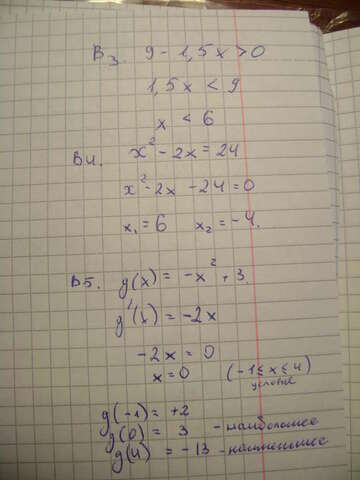 В3. 9 - 1,5x > 0
1,5x < 9
x < 6
В4. x² - 2x = 24
x² - 2x - 24 = 0
x₁ = 6 x₂ = -4.
В5. y(x) = -x² + 3
y'(x) = -2x
-2x = 0
x = 0 (-1 ≤ x ≤ 4)
условие
y(-1) = +2
y(0) = 3 - наибольшее
y(4) = -13 - наименьшее